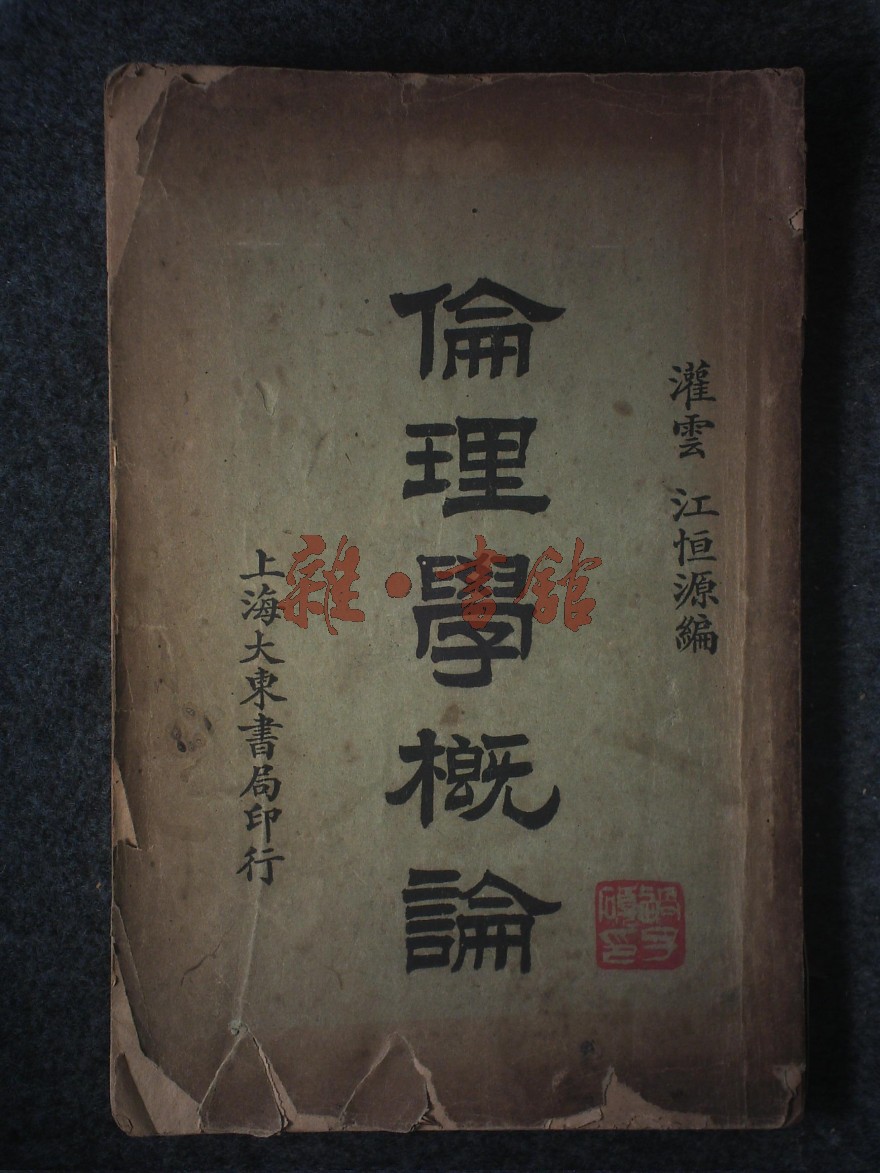 灌雲 江恒源編
倫理學概論
上海大東書局印行
雜·書館